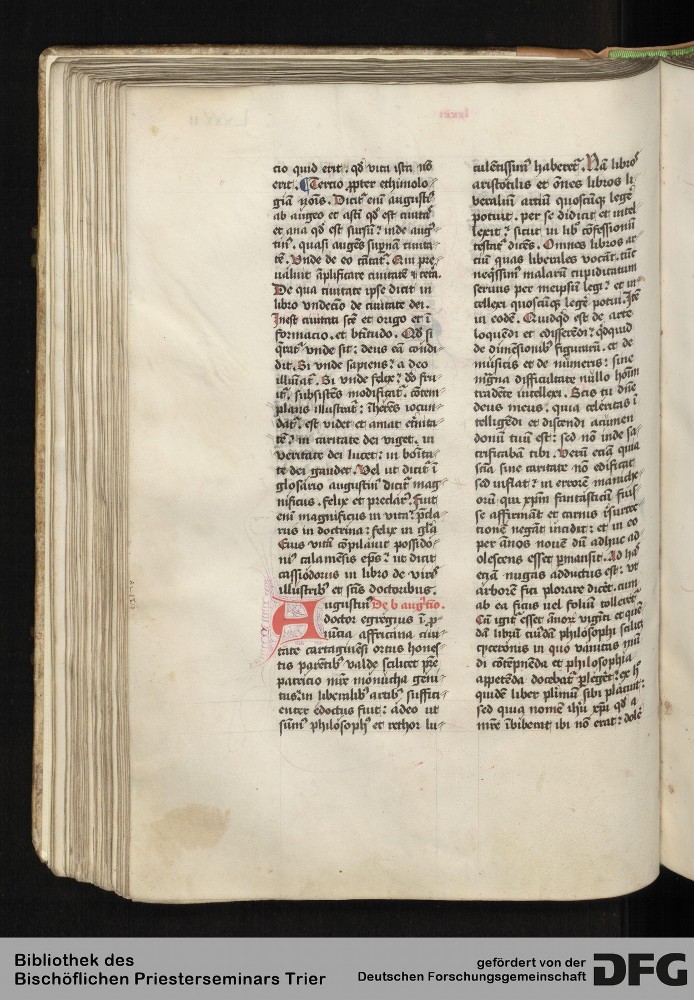 lxxxi
cio quid erit . qd̓ vita ista nō
erit . Tercio ꝓpter ethimolo⸗
giā noīs . Dicit᷑ enī augustꝰ
ab augeo et asti qd̓ est ciuitas
et ana qd̓ est sursū : inde augꝰ
tinꝰ . quasi augēs supnam ciuita⸗
tē . Vnde de eo cātat᷑ . Qui pre⸗
ualuit āplificare ciuitatē ⁊ cetͣ .
De qua ciuitate ipse dicit in
libro vndecīo de ciuitate dei .
Inest ciuitati scē et origo et ī
formacio . et btītudo . Qd̓ si
qͥrat᷑ vnde sit : deus eā condi⸗
dit . Si vnde sapiens : a deo
illuīat᷑ . Si vnde felix : deo fru
it᷑ , subsistēs modificat᷑ . cōtem⸗
plans illustrat᷑ : īherēs iocun⸗
dat᷑ . est videt et amat et̓nita⸗
te : in caritate dei viget . in
veritate dei lucet : in boīta⸗
te dei gaudet . Vel ut dicit᷑ ī
glosario augustinꝰ dicit᷑ mag⸗
nificus . felix et preclarꝰ . Fuit
enī magnificus in vita : p̄cla⸗
rus in doctrina : felix in gl̄a
Eius vitā cōpilauit possido⸗
niꝰ calamesis ep̄s : ut dicit
cassiodorus in libro de viris
illustribꝰ et sūs doctoribus .
Augustinꝰ De b augꝰtīo .
doctor egregius ī ꝓ⸗
uincia affricana ciui⸗
tate cartaginēsi ortus hones⸗
tis parētibꝰ valde scilicet pr̄e
patricio mr̄e monicha geni⸗
tus : in liberalibꝰ artibꝰ suffici⸗
enter edoctus fuit : adeo ut
sūmꝰ philosophꝰ et rethor lu⸗
culentissimꝰ haberet᷑ . Nā libros
aristotilis et ōnes libros li⸗
beraliū artiū quoscūq̨ legē
potuit . per se didicit et intel⸗
lexit : sicut in libͦ cōfessionū
testat᷑ dicēs . Omnes libros ar⸗
tiū quas liberales vocāt . tūc
neqͥssimꝰ malarū cupiditatum
seruus per meipsū legi : et in⸗
tellexi quoscūq̨ legē potui . Itē
in eodē . Quidqͥd est de arte
loquēdi et edisserēdi : qͥdquid
de dimēsionibꝰ figurarū . et de
musicis et de numeris : sine
magna difficultate nullo hoīm
tradēte intellexi . Scis tu dn̄e
deus meus : quia celeritas ī
telligēdi et discendi acumen
donū tuū est : sed nō inde sa⸗
crificabā tibi . Verū etiā quia
sciā sine caritate nō edificat
sed inflat : in errorē maniche⸗
orū qui xp̄m fantasticū fuis⸗
se affirmāt et carnis resurrec⸗
tionē negāt incidit : et in eo
per ānos nouē dū adhuc ad⸗
olescens esset ꝑmansit . Ad has
etiā nugas adductus est : ut
arborē fici plorare dicēt . cum
ab ea ficus uel foliū tollerēt᷑
Cū igit᷑ esset ānorꝝ vigīti et quē⸗
dā librū cuiꝰdā philosophi scilicͭ
cyceronis in quo vanitas mūdi
di cōtēpnēda et philosophia
appetēda docebat᷑ ꝑlegēt : ex hͦ
quidē liber pl̓imū sibi placuit :
sed quia nomē ih̄u xp̄i qd̓ a
mr̄e ībiberat ibi nō erat : dole⸗
Bibliothek des
Bischöflichen Priesterseminars Trier
gefördert von der
Deutschen Forschungsgemeinschaft
DFG